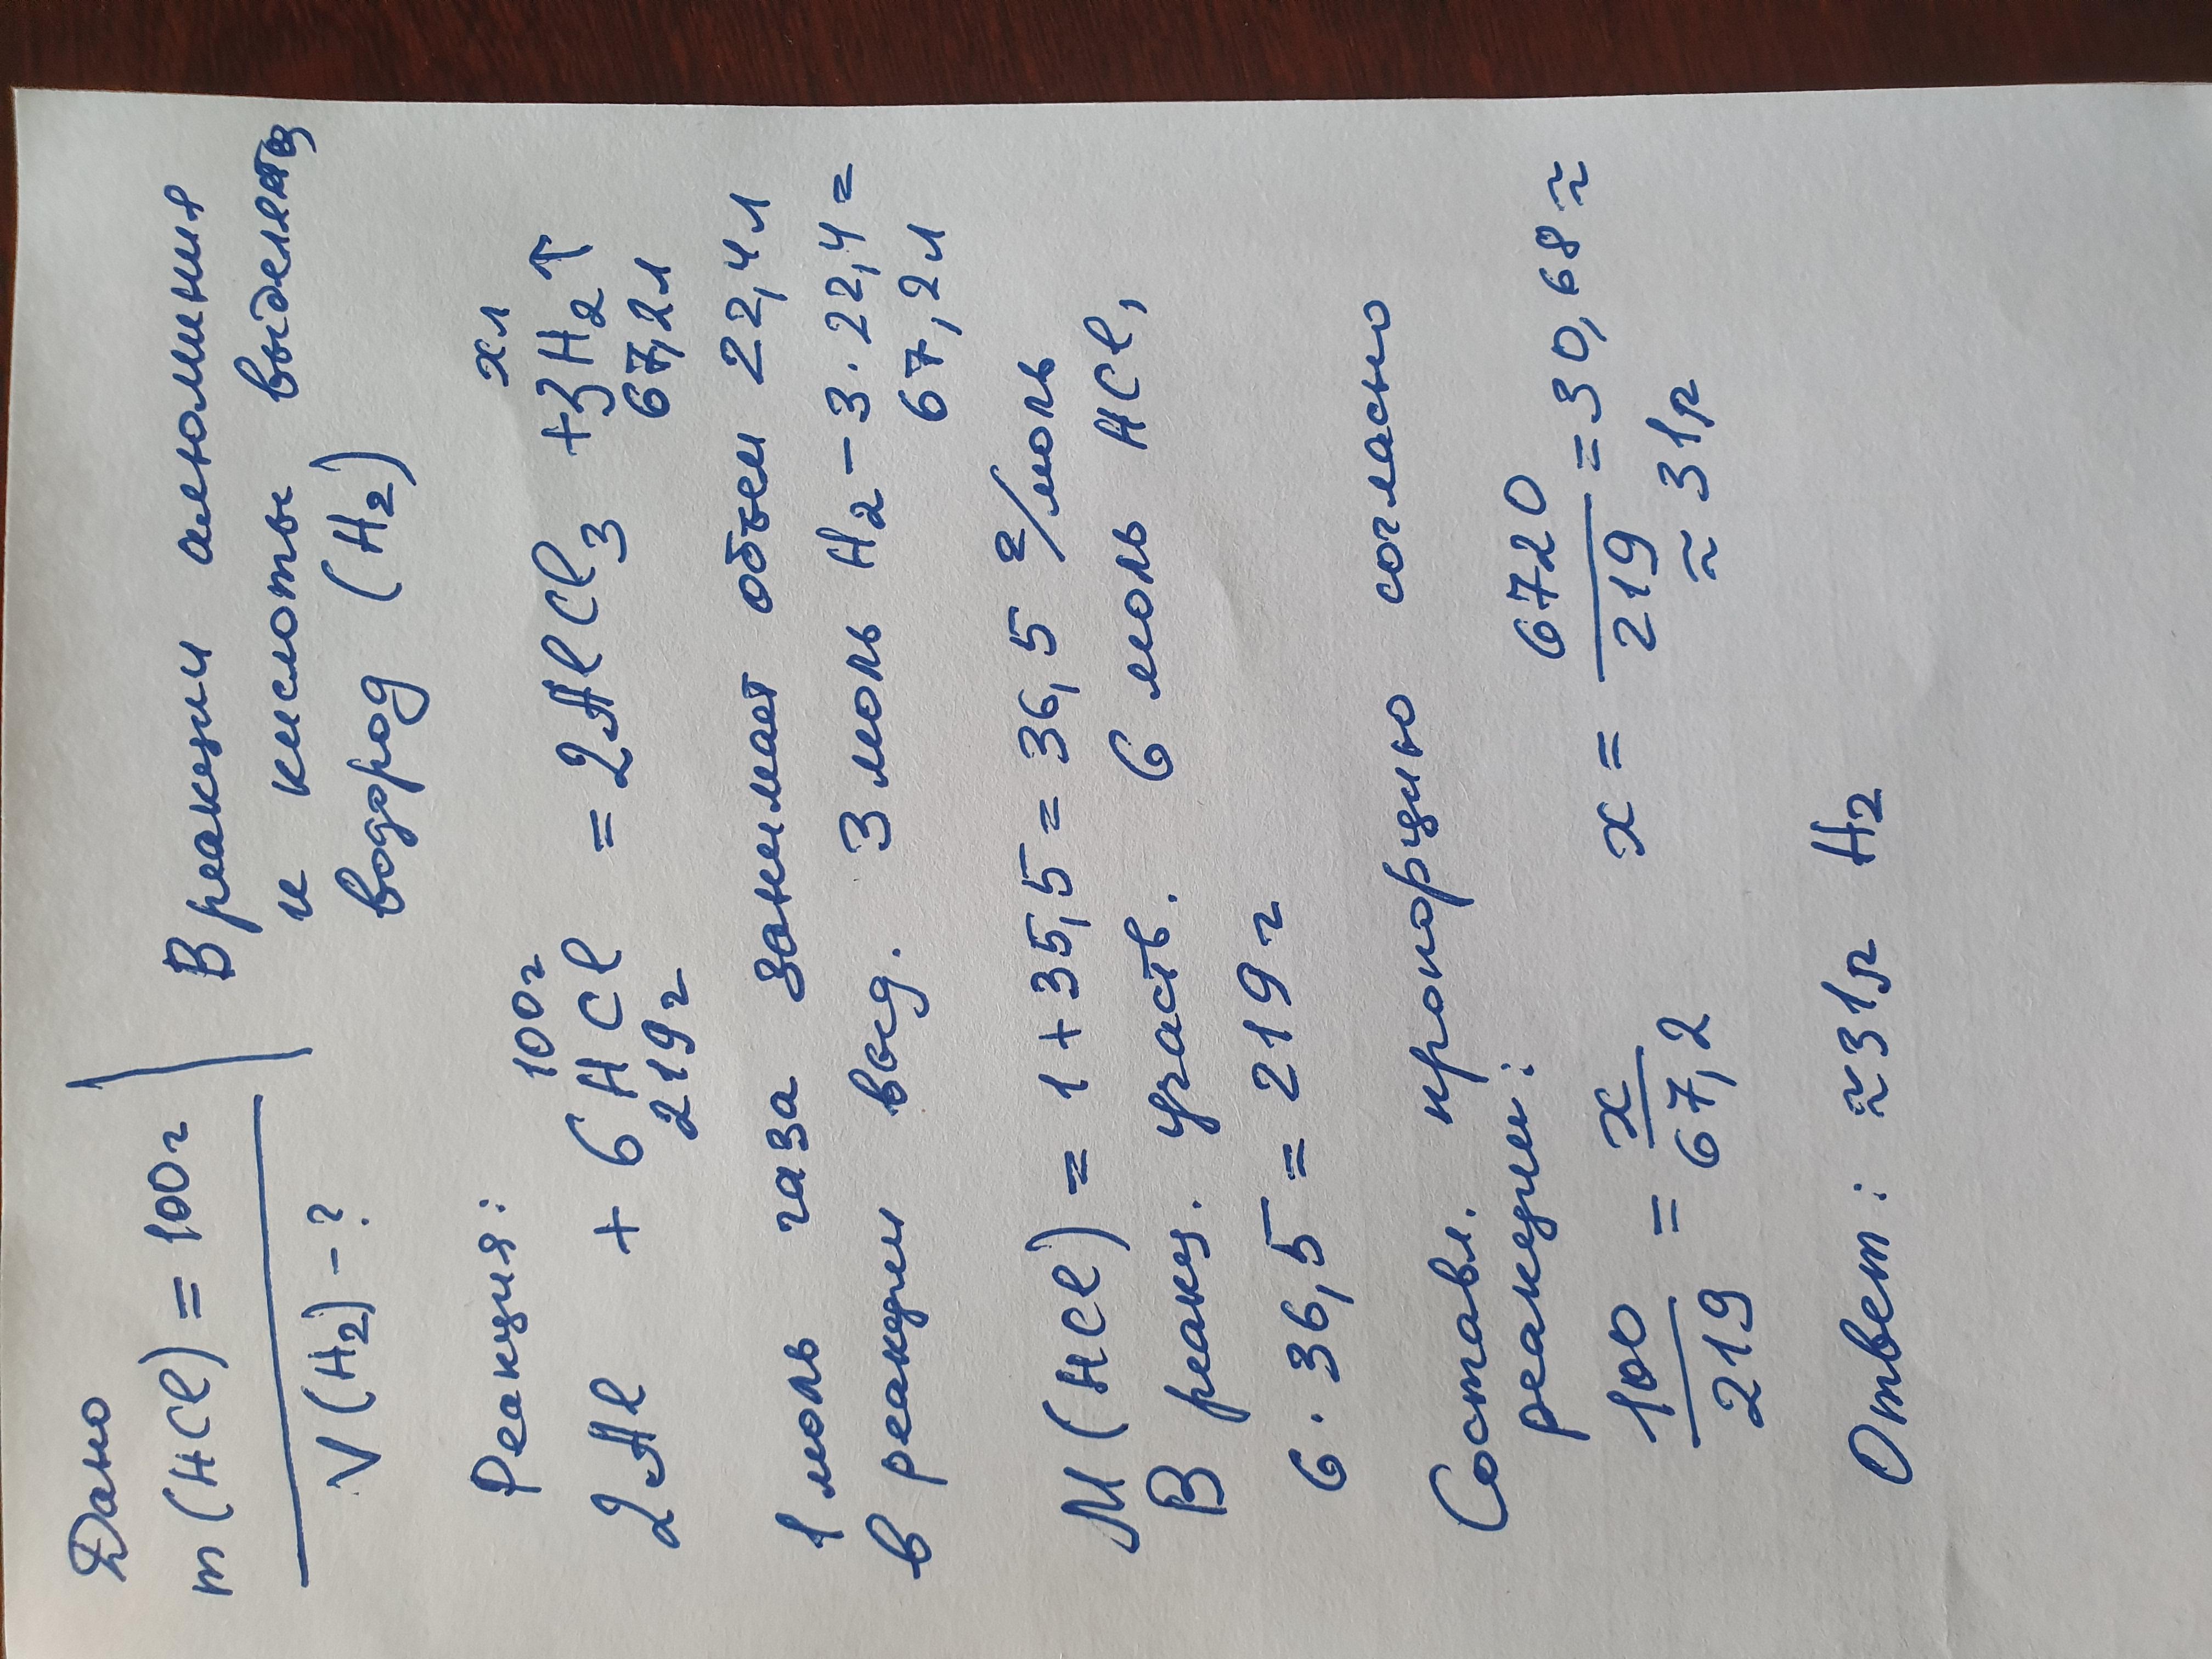 Дано
m(HCl) = 100г
V(H2) - ?
В реакции алюминия
и кислоты выделяется
водород (H2)
Реакция:
100г xл
2Al + 6HCl = 2AlCl3 + 3H2↑
219г 67,2л
1 моль газа занимает объем 22,4л
в реакции выд. 3 моль H2 - 3·22,4=
67,2л
M(HCl) = 1+35,5 = 36,5 г/моль
В реакц. участв. 6 моль HCl,
6·36,5 = 219г
Составл. пропорцию согласно
реакции:
100/219 = x/67,2 x = 6720/219 = 30,68 ≈
≈ 31л
Ответ: ≈31л H2